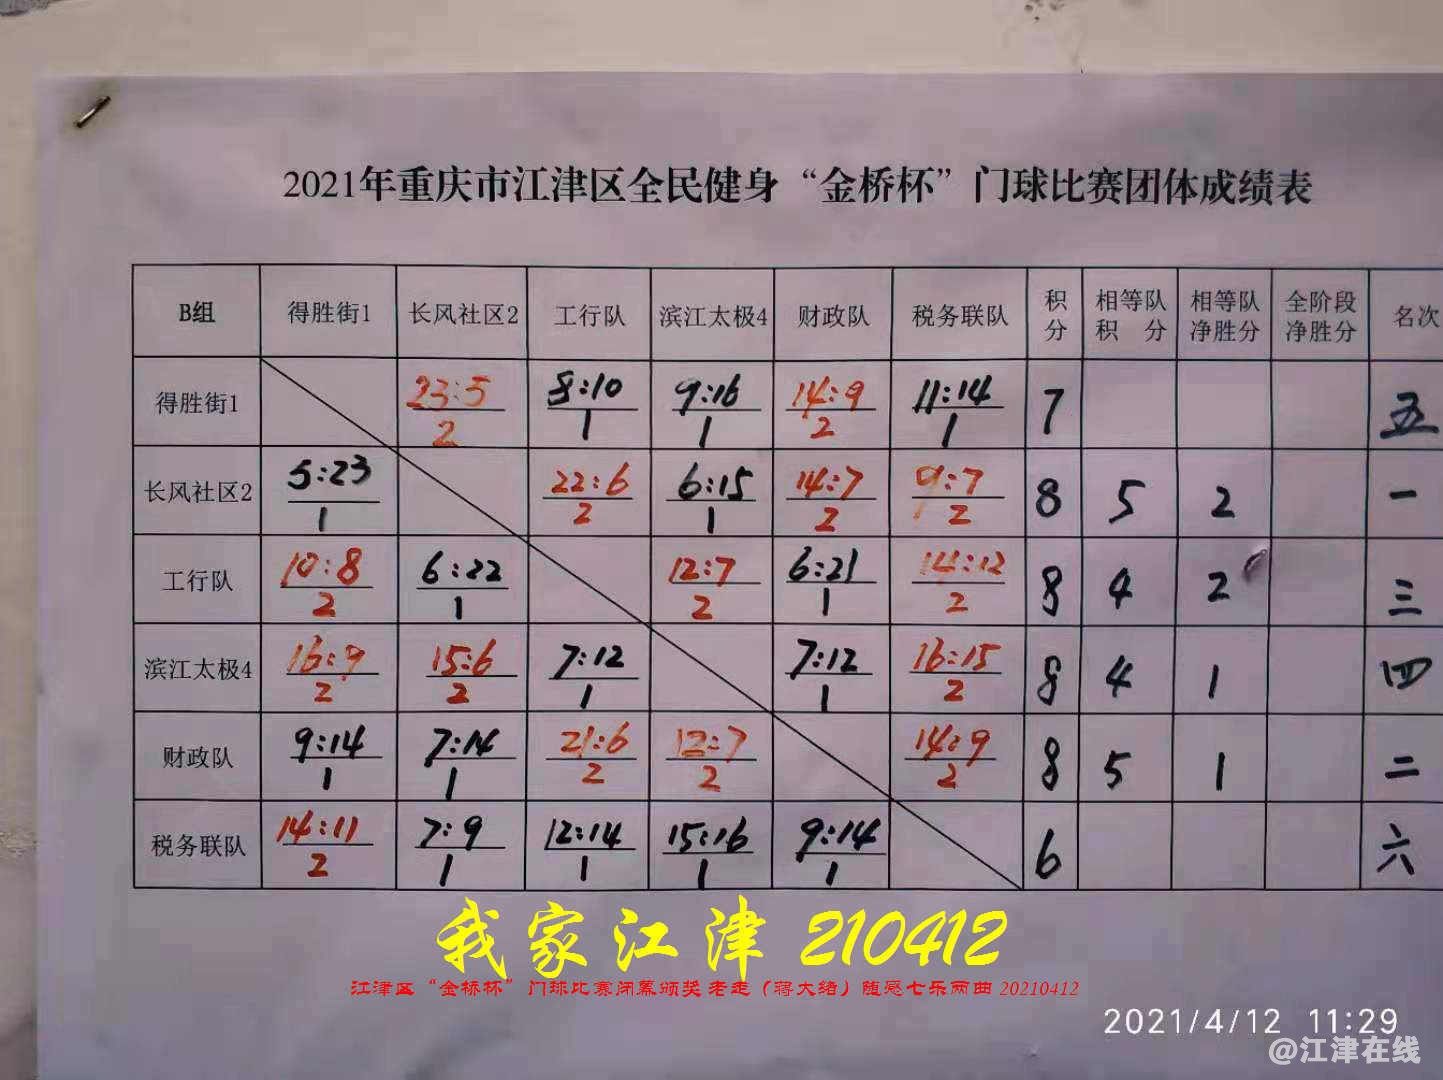 2021年重庆市江津区全民健身“金桥杯”门球比赛团体成绩表
B组 得胜街1 长风社区2 工行队 滨江太极4 财政队 税务联队 积分 相等队积分 相等队净胜分 全阶段净胜分 名次
得胜街1 23:5 2 8:10 1 9:16 1 14:9 2 11:14 1 7 五
长风社区2 5:23 1 22:6 2 6:15 1 14:7 2 9:7 2 8 5 2 一
工行队 10:8 2 6:22 1 12:7 2 6:21 1 14:12 2 8 4 2 三
滨江太极4 16:9 2 15:6 2 7:12 1 7:12 1 16:15 2 8 4 1 四
财政队 9:14 1 7:14 1 21:6 2 12:7 2 14:9 2 8 5 1 二
税务联队 14:11 2 7:9 1 12:14 1 15:16 1 9:14 1 6 六
我家江津 210412
江津区“金桥杯”门球比赛闭幕颁奖 老走（蒋大绪）随感七乐两曲 20210412
2021/4/12 11:29
@江津在线